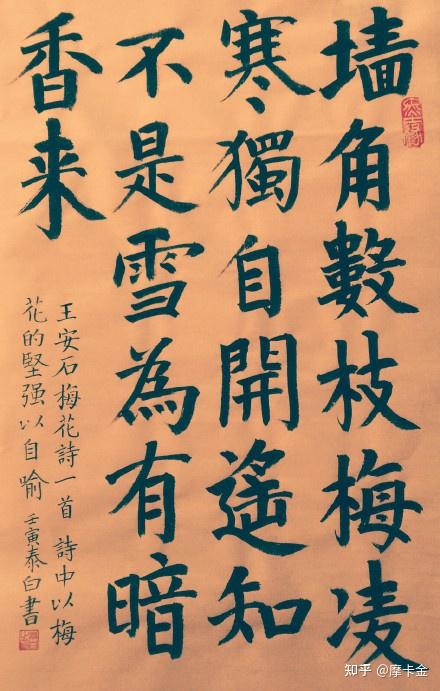 墙角數枝梅凌
寒獨自開遥知
不是雪為有暗
香来
王安石梅花詩一首 詩中以梅
花的堅强以自喻 壬寅泰白書
知乎 @摩卡金